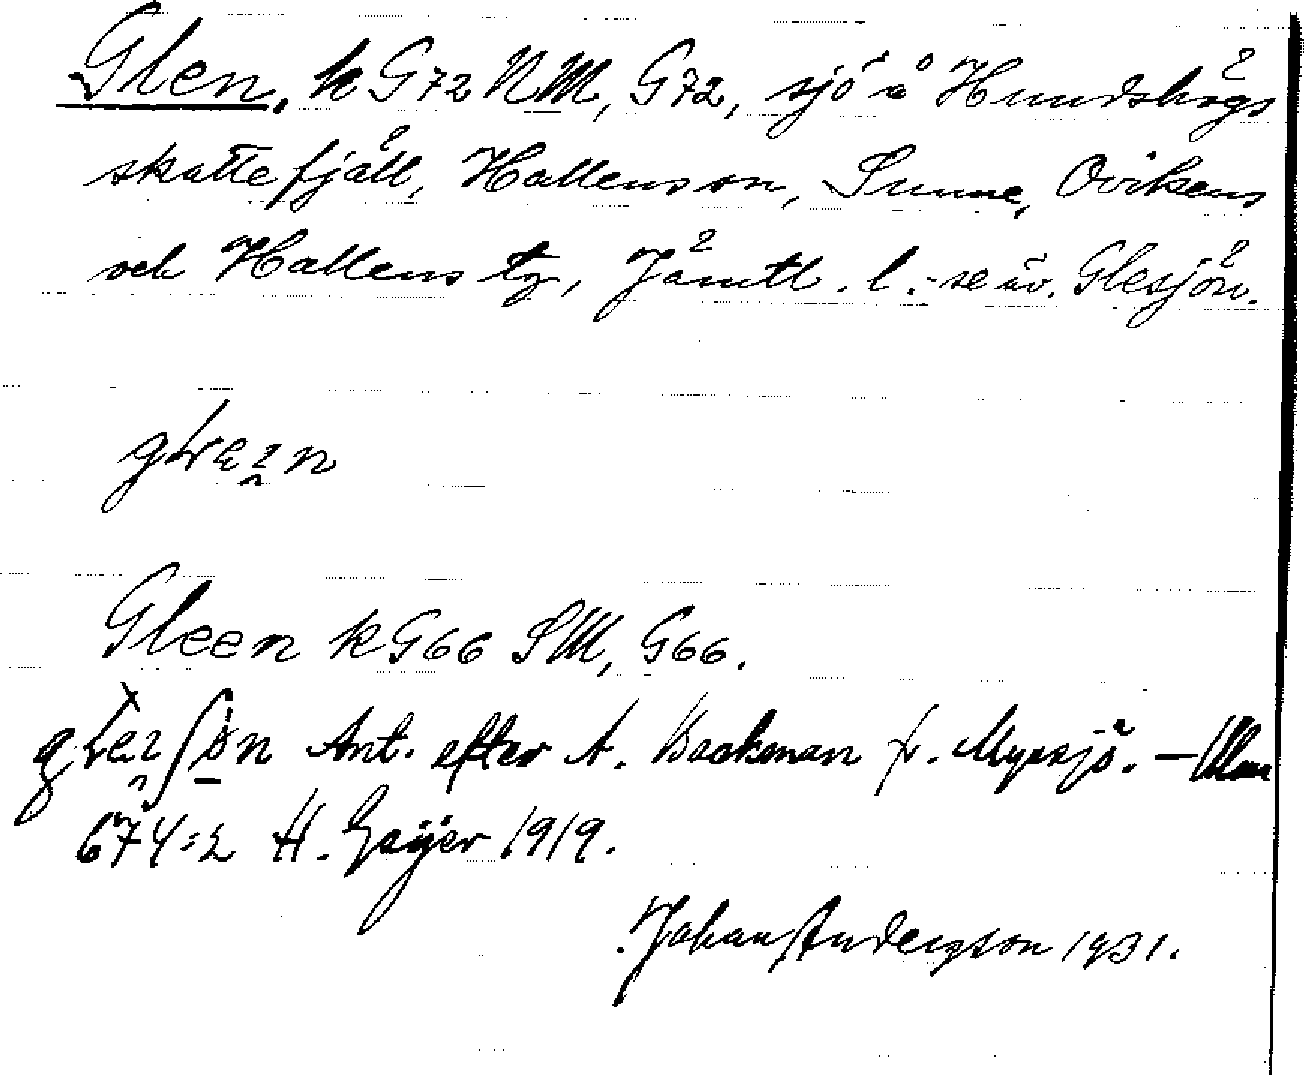 Glen, k G72 NM, G72, sjö å Hundshögs
skattefjäll, Hallens sn, Sunne, Ovikens
och Hallens tg, Jämtl. l. - se äv. Glesjön.
Gleen k G66 SM, G66.
Ant. efter A. Backman fr. Myssjö. - Ulma
674:2 H. Geijer 1919.
Johan Andersson 1931.